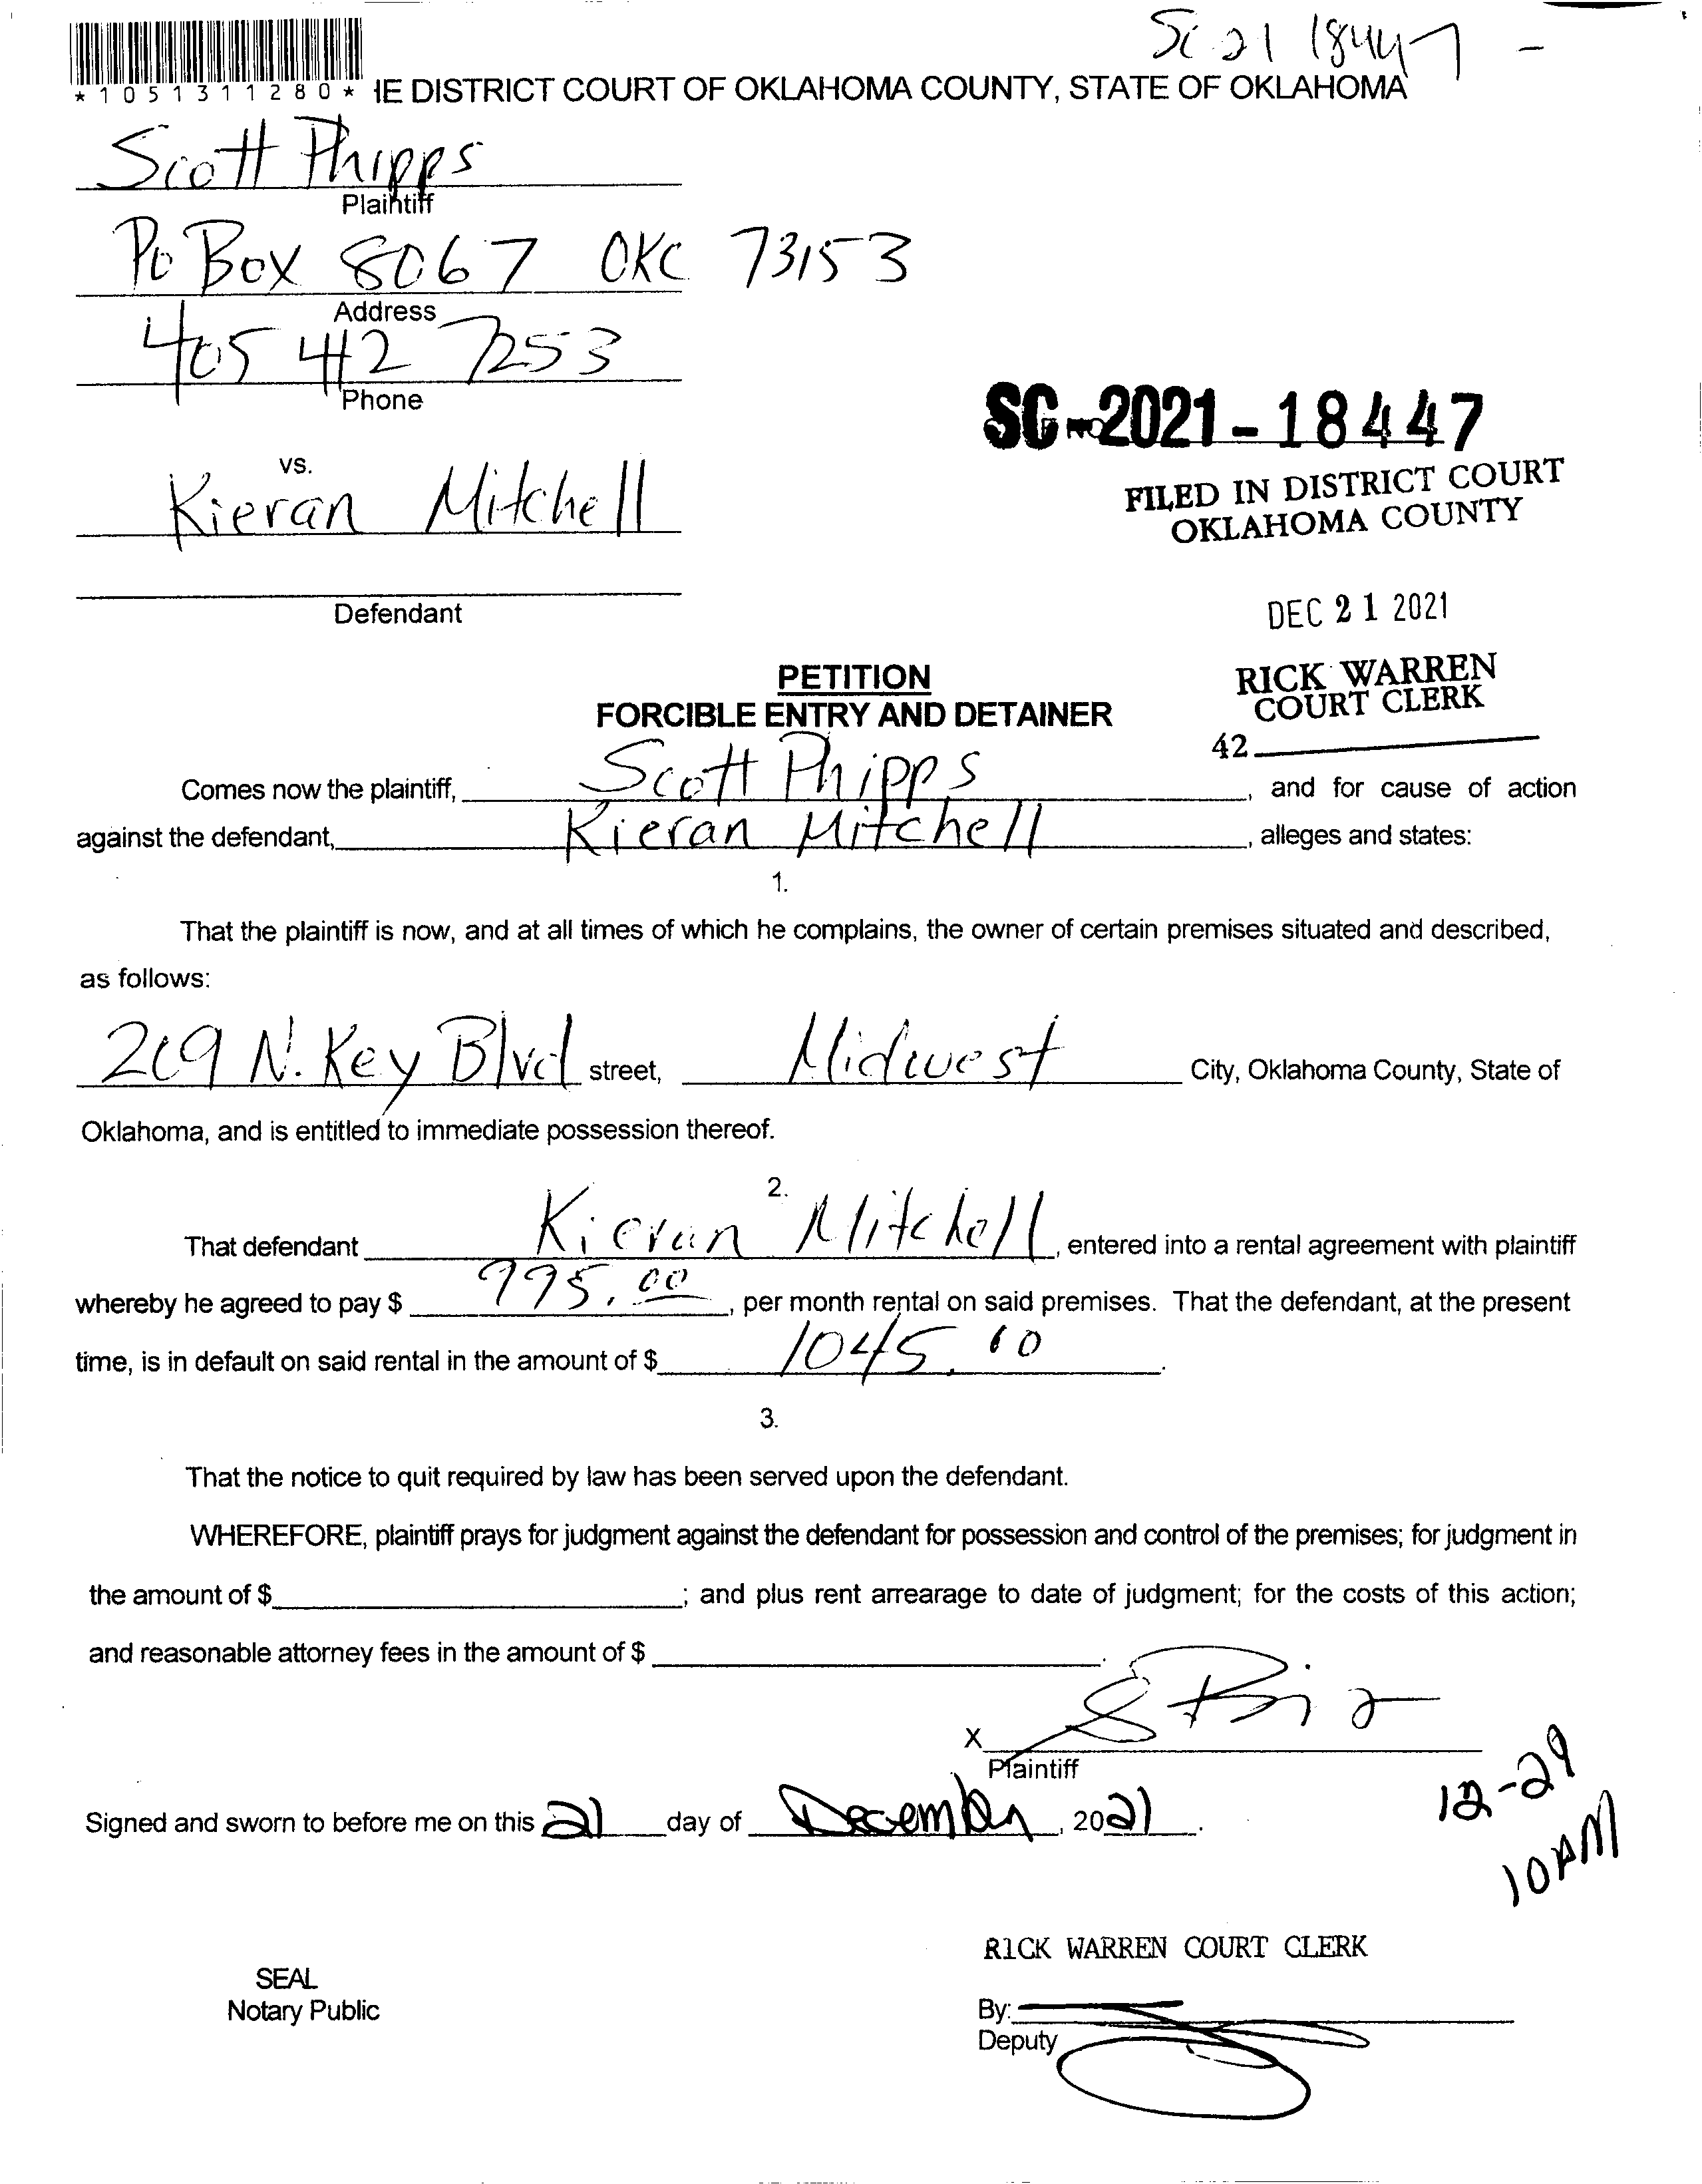 SC 21 18447 -
*1051311280* IE DISTRICT COURT OF OKLAHOMA COUNTY, STATE OF OKLAHOMA
Scott Phipps
Plaintiff
Po Box 8067 OKC 73153
Address
405 412 7253
Phone
SC-2021-18447
vs.
Kieran Mitchell
FILED IN DISTRICT COURT
OKLAHOMA COUNTY
Defendant
DEC 21 2021
PETITION
FORCIBLE ENTRY AND DETAINER
RICK WARREN
COURT CLERK
42
Comes now the plaintiff, Scott Phipps, and for cause of action
against the defendant, Kieran Mitchell, alleges and states:
1.
That the plaintiff is now, and at all times of which he complains, the owner of certain premises situated and described,
as follows:
209 N. Key Blvd street, Midwest City, Oklahoma County, State of
Oklahoma, and is entitled to immediate possession thereof.
2.
That defendant Kieran Mitchell, entered into a rental agreement with plaintiff
whereby he agreed to pay $ 995.00, per month rental on said premises. That the defendant, at the present
time, is in default on said rental in the amount of $ 1045.00.
3.
That the notice to quit required by law has been served upon the defendant.
WHEREFORE, plaintiff prays for judgment against the defendant for possession and control of the premises; for judgment in
the amount of $ ; and plus rent arrearage to date of judgment; for the costs of this action;
and reasonable attorney fees in the amount of $ .
X
Plaintiff
12-29
10AM
Signed and sworn to before me on this 21 day of December, 2021.
RICK WARREN COURT CLERK
SEAL
Notary Public
By:
Deputy